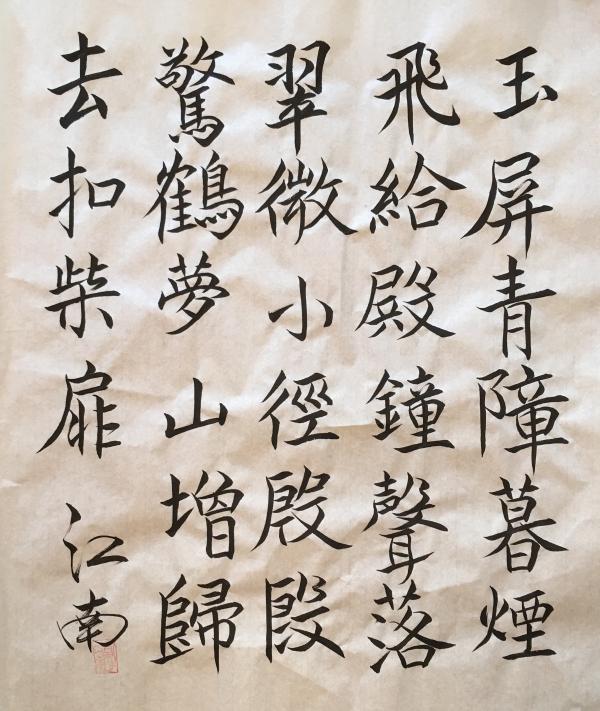 玉屏青障暮煙
飛給殿鐘聲落
翠微小徑殷殷
驚鶴夢山增歸
去扣柴扉
江南